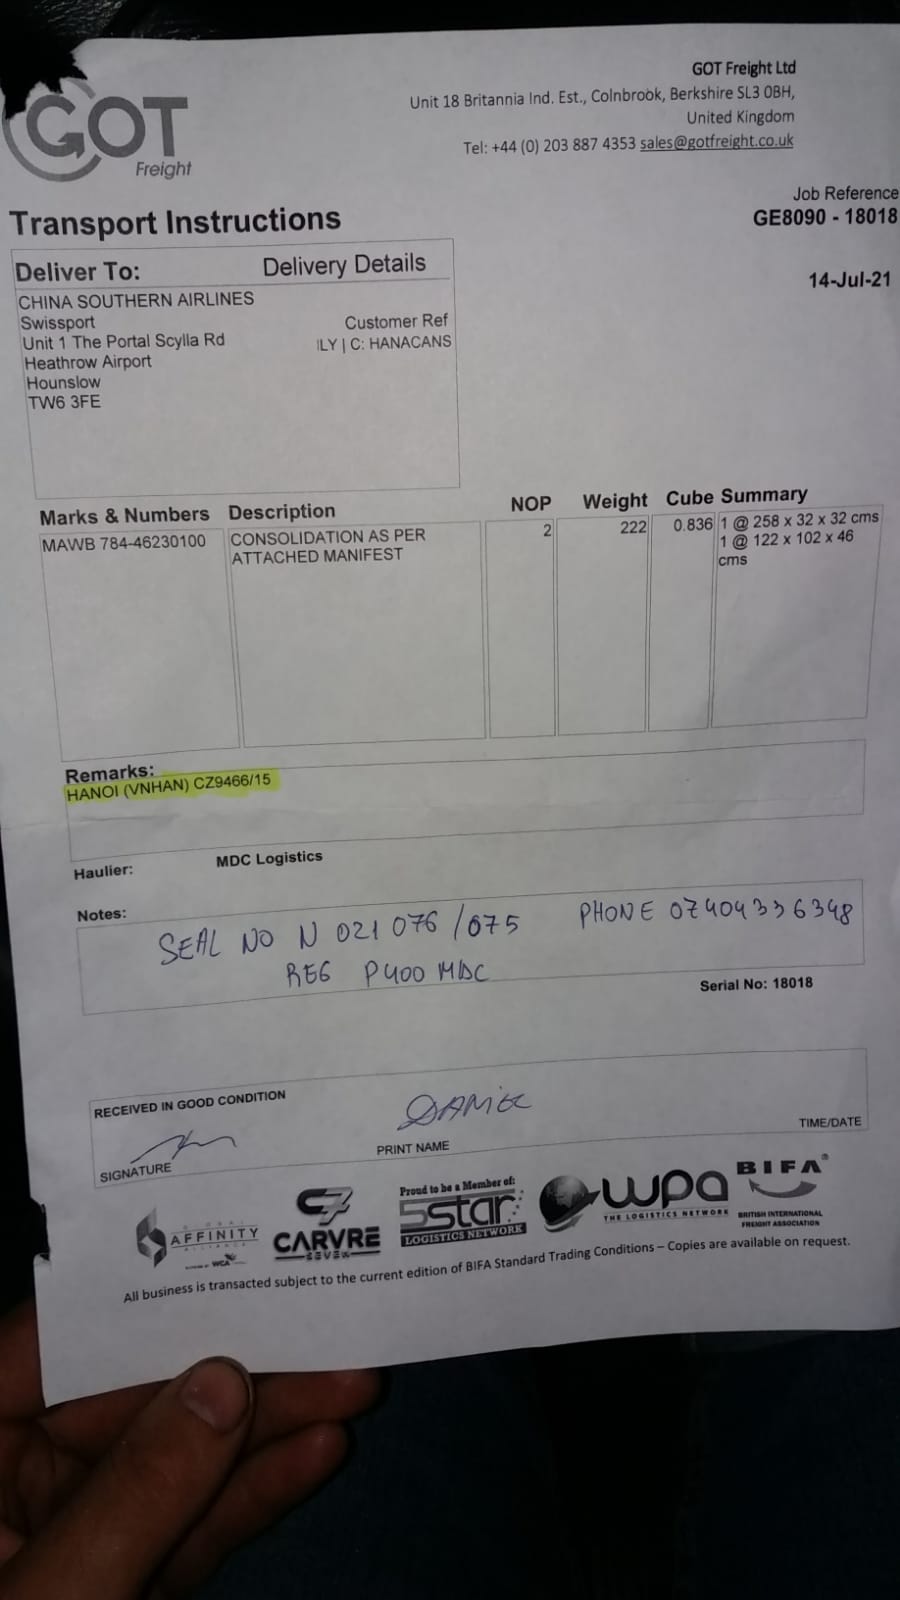 GOT
Freight
GOT Freight Ltd
Unit 18 Britannia Ind. Est., Colnbrook, Berkshire SL3 0BH,
United Kingdom
Tel: +44 (0) 203 887 4353 sales@gotfreight.co.uk
Job Reference
GE8090 - 18018
Transport Instructions
14-Jul-21
Deliver To: Delivery Details
CHINA SOUTHERN AIRLINES
Swissport Customer Ref
Unit 1 The Portal Scylla Rd ILY | C: HANACANS
Heathrow Airport
Hounslow
TW6 3FE
Marks & Numbers Description NOP Weight Cube Summary
MAWB 784-46230100 CONSOLIDATION AS PER 2 222 0.836 1 @ 258 x 32 x 32 cms
ATTACHED MANIFEST 1 @ 122 x 102 x 46
cms
Remarks:
HANOI (VNHAN) CZ9466/15
Haulier: MDC Logistics
Notes:
SEAL NO N 021 076 /075 PHONE 07404336348
REG P400 MDC
Serial No: 18018
RECEIVED IN GOOD CONDITION
SIGNATURE
PRINT NAME
TIME/DATE
AFFINITY
WCA
C7
CARVRE
SEVEN
Proud to be a Member of:
5star
LOGISTICS NETWORK
wpa
THE LOGISTICS NETWORK
BIFA®
BRITISH INTERNATIONAL
FREIGHT ASSOCIATION
All business is transacted subject to the current edition of BIFA Standard Trading Conditions – Copies are available on request.